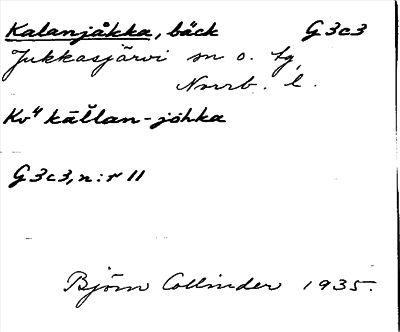 Kalanjåkka, bäck G3c3
Jukkasjärvi sn o. tg,
Norrb. l.
Kv⁴ kāllan-johka
G3c3, n:r 11
Björn Collinder 1935.